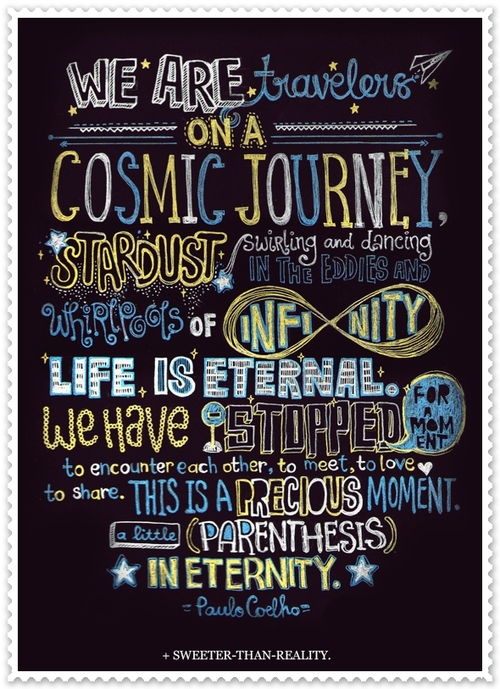 WE ARE travelers
ON A
COSMIC JOURNEY,
STARDUST swirling and dancing
IN THE EDDIES AND
WHIRLPOOLS OF INFINITY
LIFE IS ETERNAL.
We HAVE STOPPED FOR A MOMENT
to encounter each other, to meet, to love
to share. THIS IS A PRECIOUS MOMENT.
a little (PARENTHESIS)
IN ETERNITY.
-Paulo Coelho-
+ SWEETER-THAN-REALITY.